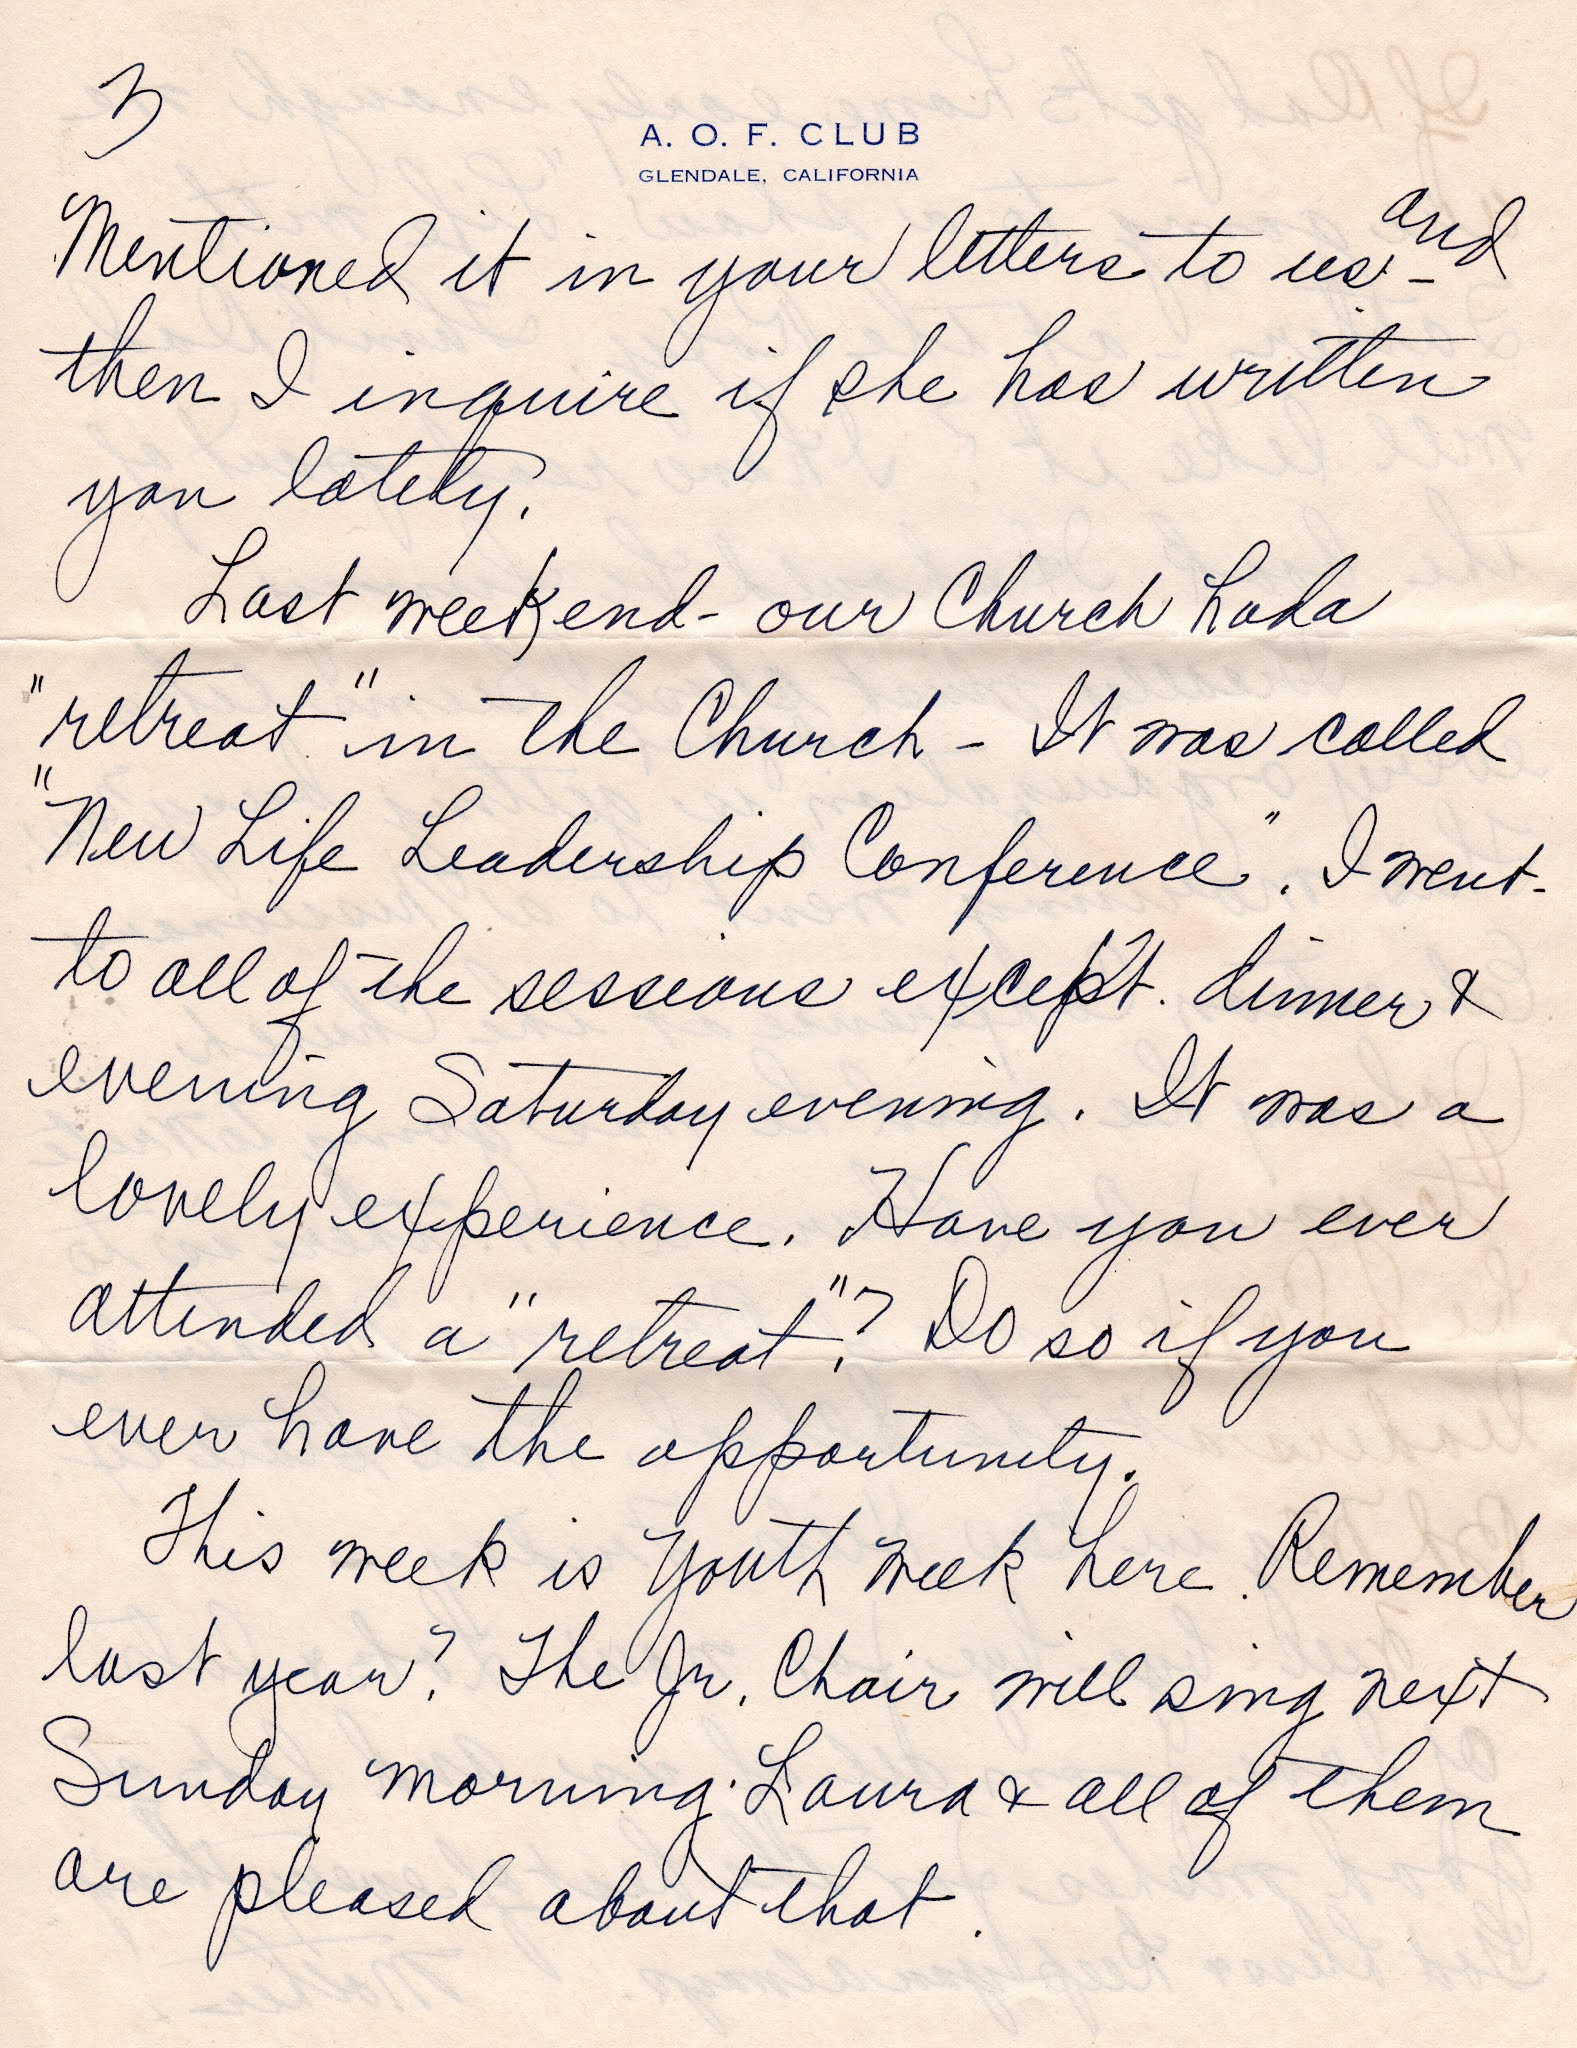 3
A. O. F. CLUB
GLENDALE, CALIFORNIA
Mentioned it in your letters to us - and
then I inquire if she has written
you lately.
Last weekend - our Church had a
"retreat" in the Church - It was called
"New Life Leadership Conference". I went
to all of the sessions except dinner &
evening Saturday evening. It was a
lovely experience. Have you ever
attended a "retreat"? Do so if you
ever have the opportunity.
This week is Youth Week here. Remember
last year? The Jr. Choir will sing next
Sunday morning. Laura & all of them
are pleased about that.